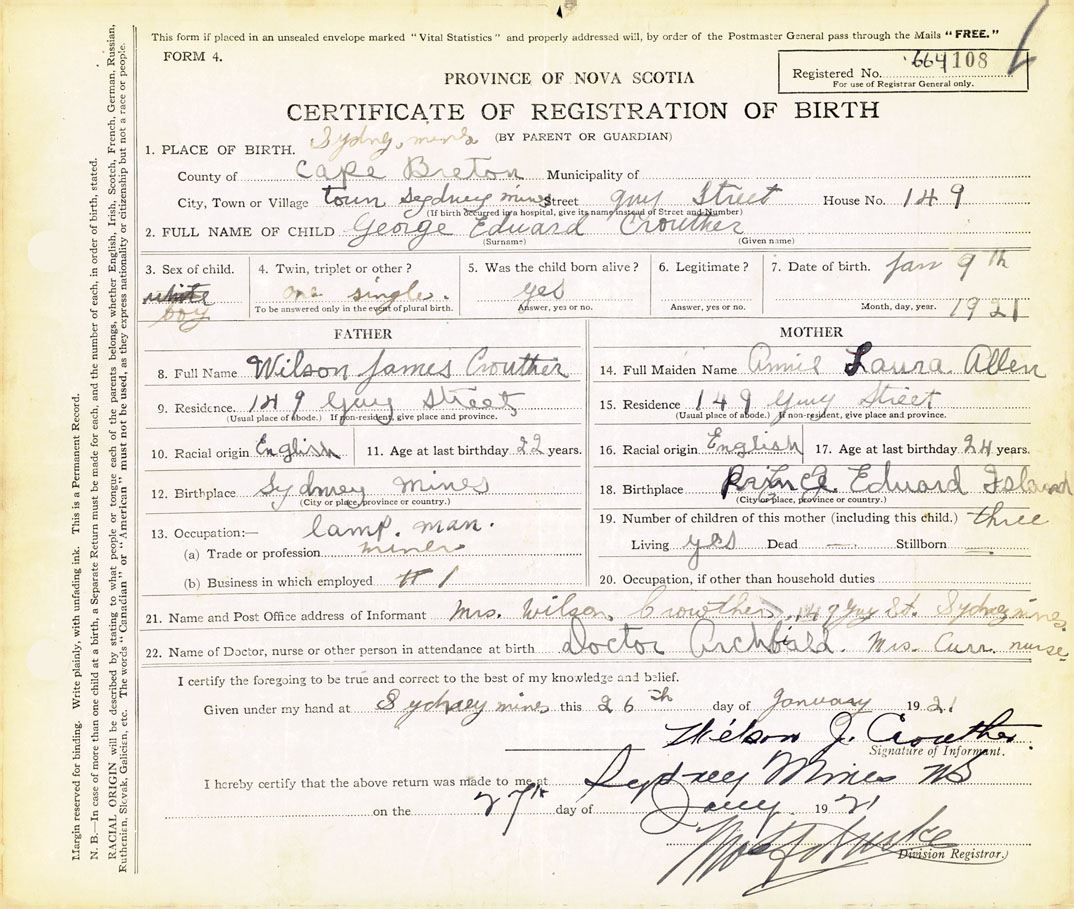 This form if placed in an unsealed envelope marked "Vital Statistics" and properly addressed will, by order of the Postmaster General pass through the Mails "FREE."
FORM 4.
Registered No. 664108
For use of Registrar General only.
PROVINCE OF NOVA SCOTIA
CERTIFICATE OF REGISTRATION OF BIRTH
(BY PARENT OR GUARDIAN)
1. PLACE OF BIRTH. Sydney, mines
County of Cape Breton Municipality of
City, Town or Village town Sydney mines Street guy Street House No. 149
(If birth occurred in a hospital, give its name instead of Street and Number)
2. FULL NAME OF CHILD George Eduard Crouther
(Surname) (Given name)
3. Sex of child. white boy
4. Twin, triplet or other? one single.
To be answered only in the event of plural birth.
5. Was the child born alive? yes
Answer, yes or no.
6. Legitimate?
Answer, yes or no.
7. Date of birth. Jan 9th 1921
Month, day, year.
FATHER
8. Full Name Wilson James Crouther
9. Residence. 149 Guy Street
(Usual place of abode.) If non-resident, give place and province.
10. Racial origin English 11. Age at last birthday 22 years.
12. Birthplace Sydney mines
(City or place, province or country.)
13. Occupation:— lamp. man.
(a) Trade or profession miner
(b) Business in which employed # 1
MOTHER
14. Full Maiden Name Annie Laura Allen
15. Residence 149 Guy Street
(Usual place of abode.) If non-resident, give place and province.
16. Racial origin English 17. Age at last birthday 24 years.
18. Birthplace Prince Eduard Island
(City or place, province or country.)
19. Number of children of this mother (including this child.) three
Living yes Dead — Stillborn —
20. Occupation, if other than household duties
21. Name and Post Office address of Informant Mrs. Wilson Crowther, 149 Guy St. Sydney mines.
22. Name of Doctor, nurse or other person in attendance at birth Doctor Archbald. Mrs. Curr. nurse
I certify the foregoing to be true and correct to the best of my knowledge and belief.
Given under my hand at Sydney mines this 26th day of January 1921
Wilson J. Crouther
Signature of Informant.
I hereby certify that the above return was made to me at Sydney Mines NS
on the 27th day of Jany 1921
Division Registrar.)
Margin reserved for binding. Write plainly, with unfading ink. This is a Permanent Record.
N. B.—In case of more than one child at a birth, a Separate Return must be made for each, and the number of each, in order of birth, stated.
RACIAL ORIGIN will be described by stating to what people or tongue each of the parents belongs, whether English, Irish, Scotch, French, German, Russian,
Ruthenian, Slovak, Galician, etc. The words "Canadian" or "American" must not be used, as they express nationality or citizenship but not a race or people.